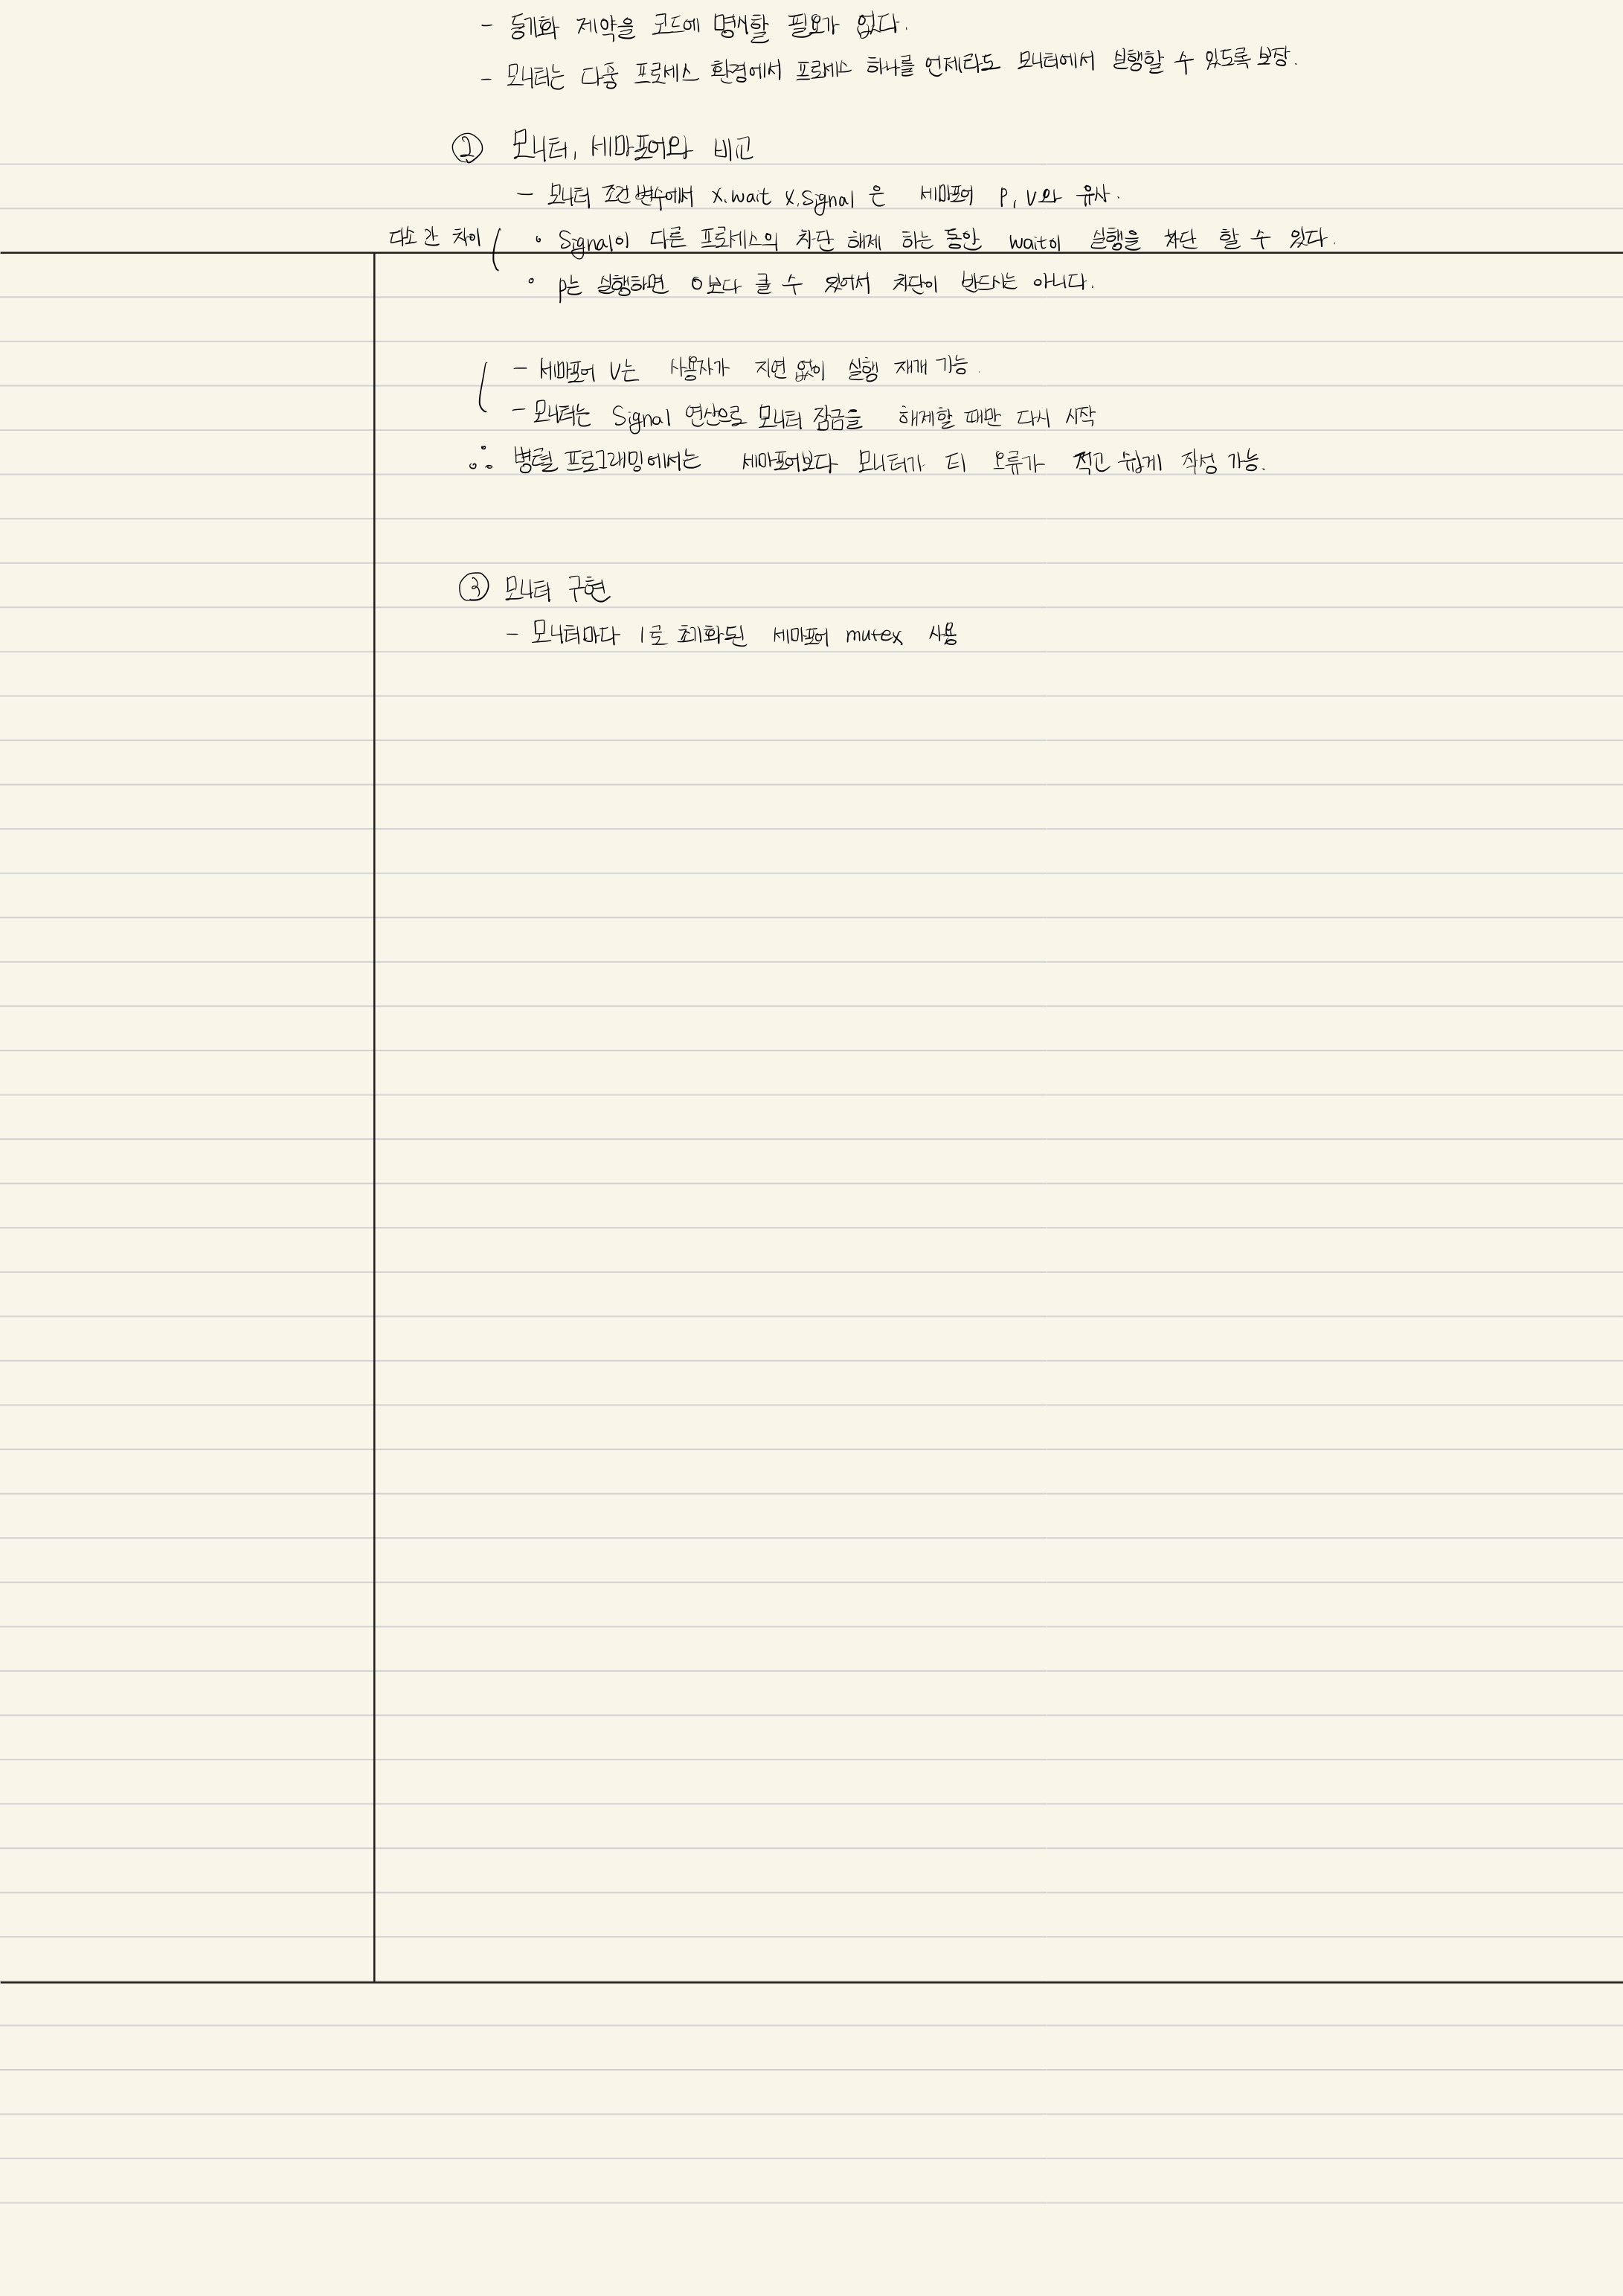 - 동기화 제약을 코드에 명시할 필요가 없다.
- 모니터는 다중 프로세스 환경에서 프로세스 하나를 언제라도 모니터에서 실행할 수 있도록 보장.
② 모니터, 세마포어와 비교
- 모니터 조건 변수에서 x.wait x.signal 은 세마포어 P, V와 유사.
다소 간 차이 ( ∘ Signal이 다른 프로세스의 차단 해제 하는 동안 wait이 실행을 차단 할 수 있다.
∘ P는 실행하면 0보다 클 수 있어서 차단이 반드시는 아니다.
- 세마포어 V는 사용자가 지연 없이 실행 재개 가능.
- 모니터는 Signal 연산으로 모니터 잠금을 해제할 때만 다시 시작
∴ 병렬 프로그래밍에서는 세마포어보다 모니터가 더 오류가 적고 쉽게 작성 가능.
③ 모니터 구현
- 모니터마다 1로 초기화된 세마포어 mutex 사용